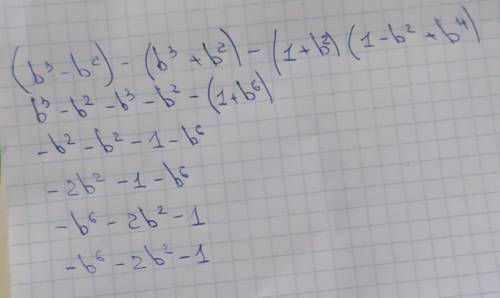 (b³ - b²) - (b³ + b²) - (1 + b²)(1 - b² + b⁴)
b³ - b² - b³ - b² - (1 + b⁶)
-b² - b² - 1 - b⁶
-2b² - 1 - b⁶
-b⁶ - 2b² - 1
-b⁶ - 2b² - 1